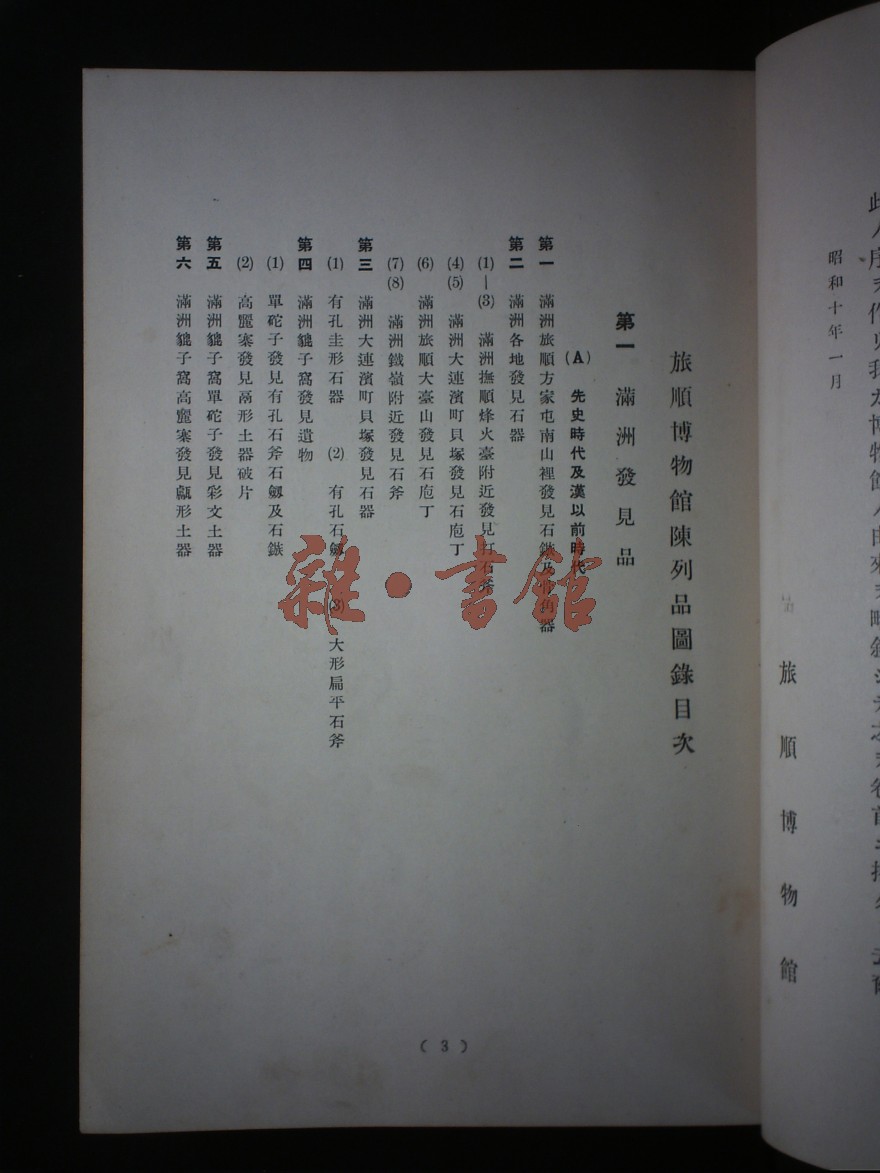 旅順博物館陳列品圖錄目次
第一 滿洲發見品
(A) 先史時代及漢以前時代
第一 滿洲旅順方家屯南山裡發見石鏃及角器
第二 滿洲各地發見石器
(1)—(3) 滿洲撫順烽火臺附近發見打石斧
(4)(5) 滿洲大連濱町貝塚發見石庖丁
(6) 滿洲旅順大臺山發見石庖丁
(7)(8) 滿洲鐵嶺附近發見石斧
第三 滿洲大連濱町貝塚發見石器
(1) 有孔圭形石器 (2) 有孔石劔 (3) 大形扁平石斧
第四 滿洲貔子窩發見遺物
(1) 單砣子發見有孔石斧石劔及石鏃
(2) 高麗寨發見鬲形土器破片
第五 滿洲貔子窩單砣子發見彩文土器
第六 滿洲貔子窩高麗寨發見甗形土器
(3)
雜·書館
昭和十年一月
旅順博物館